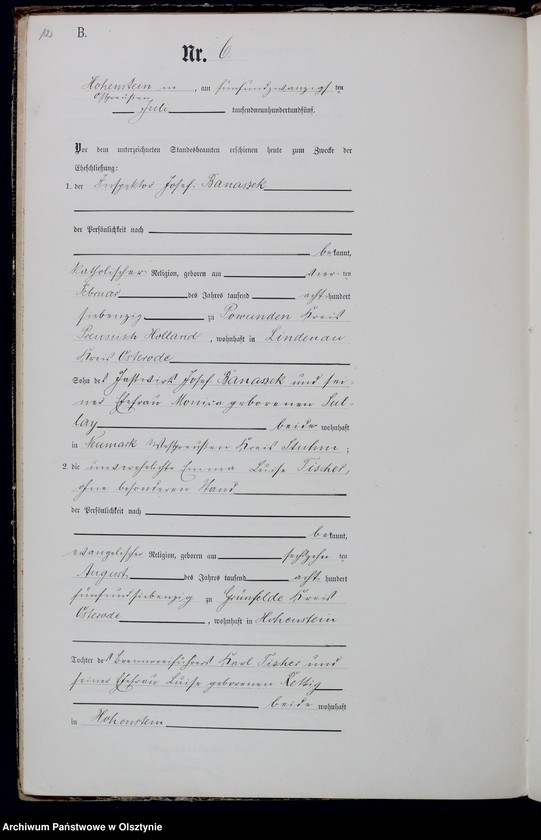 B.
Nr. 6
Hohenstein in, am fünfundzwanzigsten
Ostpreußen
Juli tausendneunhundertundfünf.
Vor dem unterzeichneten Standesbeamten erschienen heute zum Zwecke der
Eheschließung:
1. der Inspektor Josef Banassek
der Persönlichkeit nach
bekannt,
katholischer Religion, geboren am vierten
Februar des Jahres tausend acht hundert
siebenzig zu Powunden Kreis
Preussisch Holland, wohnhaft in Lindenau
Kreis Osterode
Sohn des Gastwirts Josef Banassek und sei-
ner Ehefrau Monica geborenen Sul-
lay beide wohnhaft
in Neumark Westpreußen Kreis Stuhm;
2. die unverehelichte Emma Luise Tischer,
ohne besonderen Stand
der Persönlichkeit nach
bekannt,
evangelischer Religion, geboren am sechszehnten
August des Jahres tausend acht hundert
fünfundsiebenzig zu Grünfelde Kreis
Osterode, wohnhaft in Hohenstein
Tochter des Brennereiführers Karl Tischer und
seiner Ehefrau Luise geborenen Rettig
beide wohnhaft
in Hohenstein
Archiwum Państwowe w Olsztynie